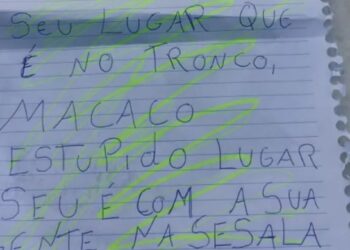 SEU LUGAR QUE
É NO TRONCO,
MACACO
ESTUPIDO LUGAR
SEU É COM A SUA
GENTE NA SESALA